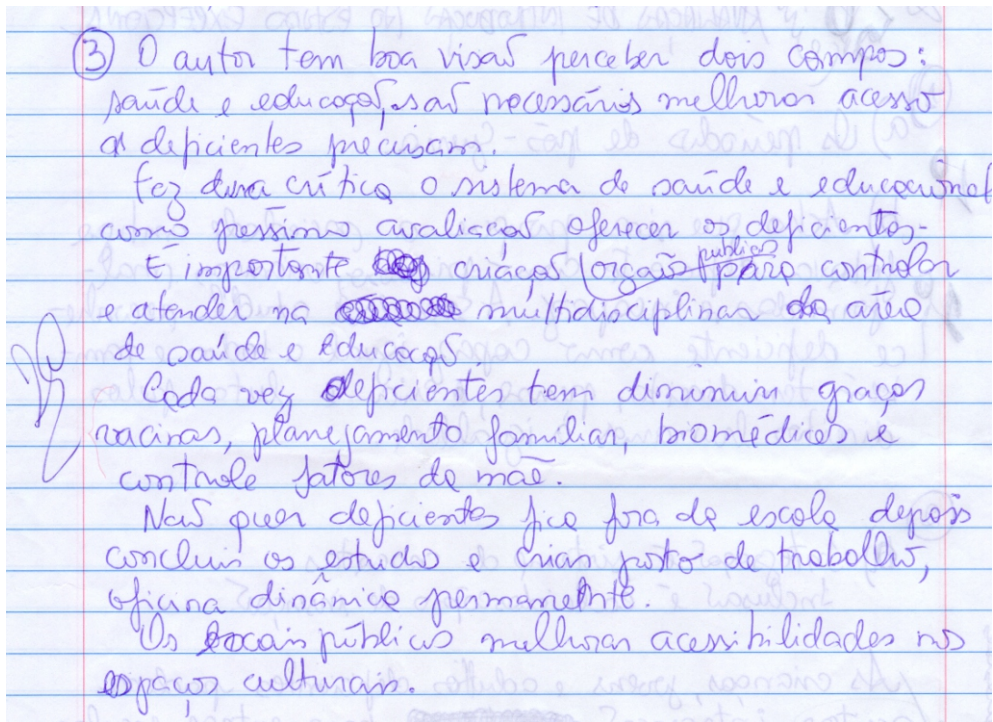 ③ O autor tem boa visão perceber dois campos:
saúde e educação, são necessários melhorar acesso
os deficientes precisam.
Faz dura crítica o sistema de saúde e educacional
como péssimo avaliação oferecer os deficientes.
É importante criação (orgão público para controlar
e atender na multidisciplinar da área
de saúde e educação
Cada vez deficientes tem diminuir graças
vacinas, planejamento familiar, biomédicos e
controle fatores da mãe.
Não quer deficientes fica fora da escola depois
concluir os estudos e criar postor de trabalho,
oficina dinâmica permanente.
Os locais públicos melhorar acessibilidades nos
espaços culturais.